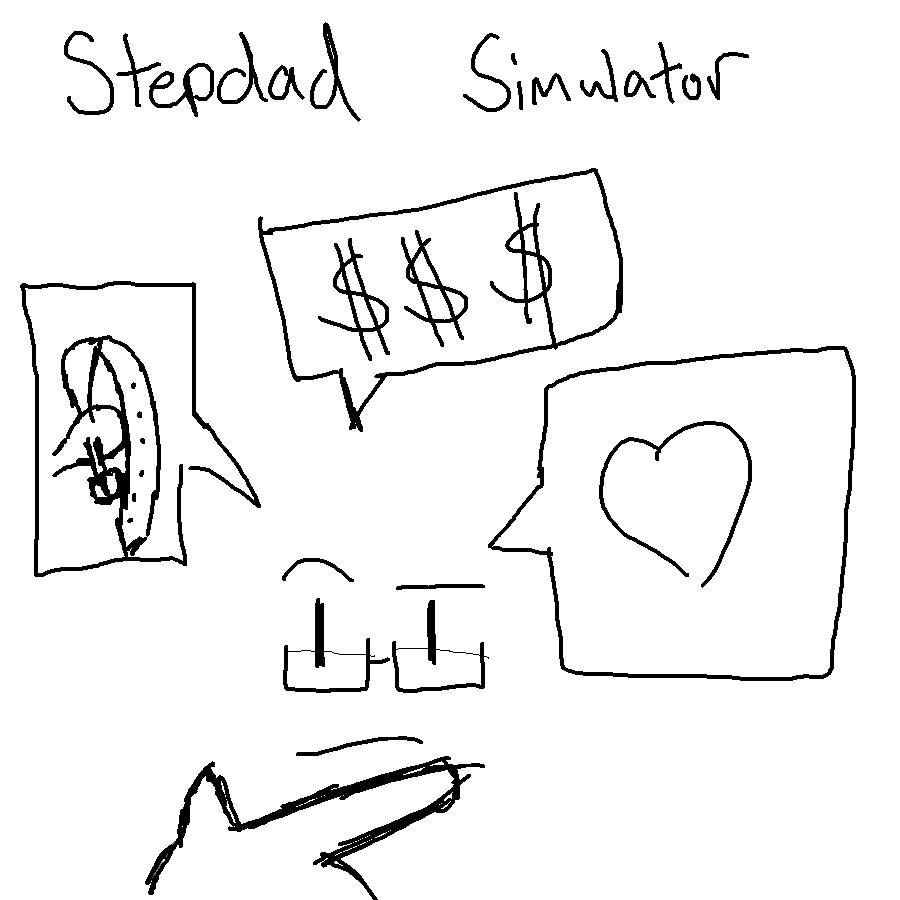 Stepdad Simulator
$$$